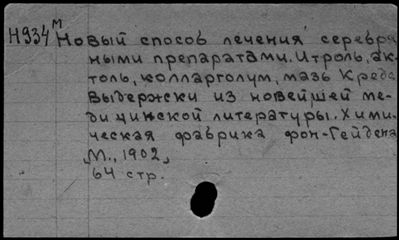 Н934м Новый способ лечения серебря
ными препаратами. Итроль, ак-
толь, колларголум, мазь Креде
Выдержки из новейшей ме-
дицинской литературы. Хими-
ческая фабрика фон-Гейдена
М., 1902,
64 стр.